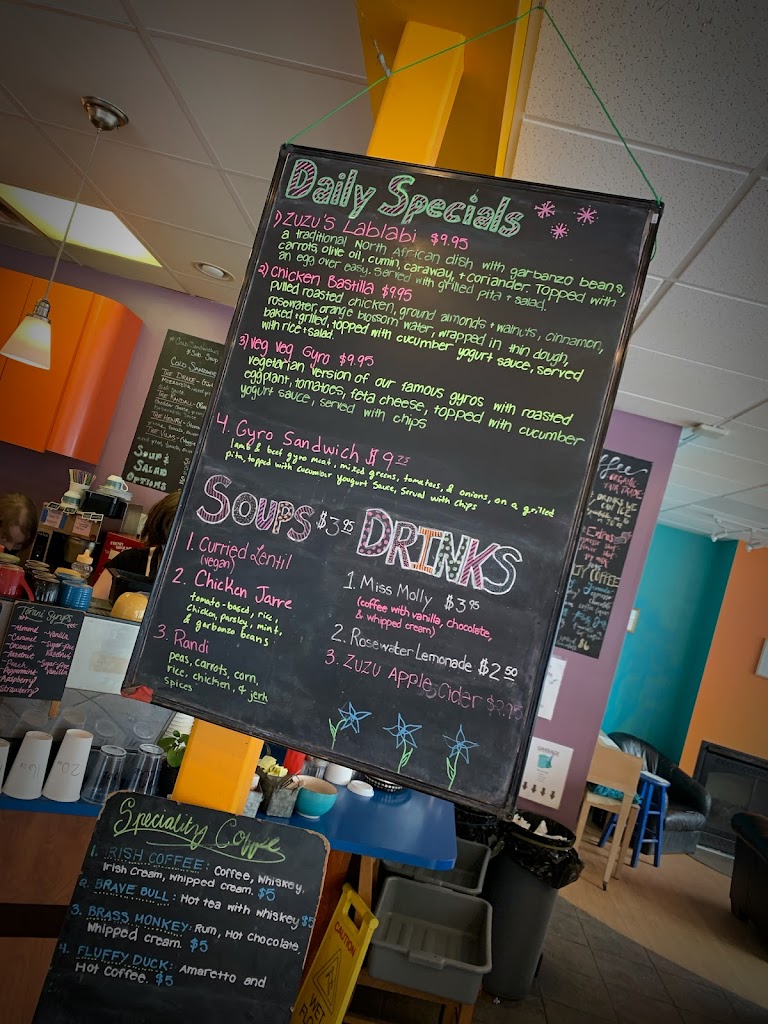 Daily Specials
1) Zuzu's Lablabi $9.95
a traditional North African dish with garbanzo beans,
carrots, olive oil, cumin, caraway, + coriander. Topped with
an egg over easy. Served with grilled pita + salad.
2) Chicken Bastilla $9.95
pulled roasted chicken, ground almonds + walnuts, cinnamon,
rosewater, orange blossom water, wrapped in thin dough,
baked + grilled, topped with cucumber yogurt sauce, served
with rice + salad.
3) Veg Veg Gyro $9.95
vegetarian version of our famous gyros with roasted
eggplant, tomatoes, feta cheese, topped with cucumber
yogurt sauce, served with chips
4. Gyro Sandwich $9.25
lamb & beef gyro meat, mixed greens, tomatoes, & onions, on a grilled
pita, topped with cucumber yougurt sauce, served with chips
Soups $3.95
1. Curried Lentil
(vegan)
2. Chicken Jarre
tomato-based, rice,
chicken, parsley, mint,
& garbanzo beans
3. Randi
peas, carrots, corn,
rice, chicken, & jerk
spices
DRINKS
1. Miss Molly $3.95
(coffee with vanilla, chocolate,
& whipped cream)
2. Rosewater Lemonade $2.50
3. Zuzu Apple Cider
Cold Sandwiches
Soup &
Salad
Options
Torani Syrups
-Almond
-Caramel
-Coconut
-Hazelnut
-Peach
-Peppermint
-Raspberry
-Strawberry
-Vanilla
-Sugar-free
Hazelnut
-Sugar-free
Vanilla
Speciality Coffee
1. Irish Coffee: Coffee, Whiskey,
Irish cream, whipped cream. $5
2. Brave Bull: Hot tea with whiskey $5
3. Brass Monkey: Rum, Hot chocolate,
Whipped cream. $5
4. Fluffy Duck: Amaretto and
Hot Coffee. $5
CAUTION
WET